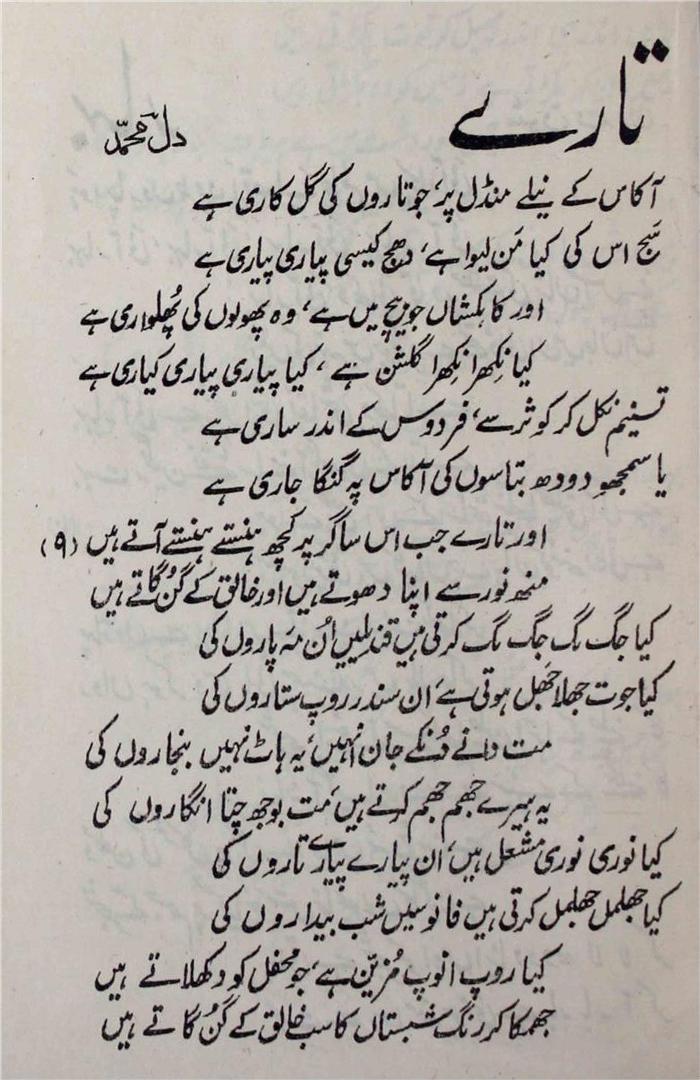 تارے
دل محمّد
آکاس کے نیلے منڈل پر، جو تاروں کی گل کاری ہے
سَج اس کی کیا مَن لیوا ہے، دھج کیسی پیاری پیاری ہے
اور کاہکشاں جو بیچ میں ہے، وہ پھولوں کی پُھلواری ہے
کیا نِکھرا نِکھرا گلشن ہے، کیا پیاری پیاری کیاری ہے
تسنیم نکل کر کوثر سے، فردوس کے اندر ساری ہے
یا سمجھو دودھ بتاسوں کی آکاس پہ گنگا جاری ہے
اور تارے جب اس ساگر پر کچھ ہنستے ہنستے آتے ہیں (۹)
منھ نور سے اپنا دھوتے ہیں اور خالق کے گُن گاتے ہیں
کیا جگ مگ جگ مگ کرتی ہیں قندیلیں اُن مَہ پاروں کی
کیا جوت جھلا جَھل ہوتی ہے، ان سندر روپ ستاروں کی
مت دانے دُنکے جان اُنہیں، یہ ہاٹ نہیں بنجاروں کی
یہ ہیرے جھم جھم کرتے ہیں، مت بوجھ چتا انگاروں کی
کیا نوری نوری مشعل ہیں، ان پیارے پیارے تاروں کی
کیا جھلمل جھلمل کرتی ہیں فانوسیں شب بیداروں کی
کیا روپ انوپ مُزیّن ہے، جو محفل کو دکھلاتے ہیں
جھمکا کر رنگ شبستاں کا سب خالق کے گُن گاتے ہیں